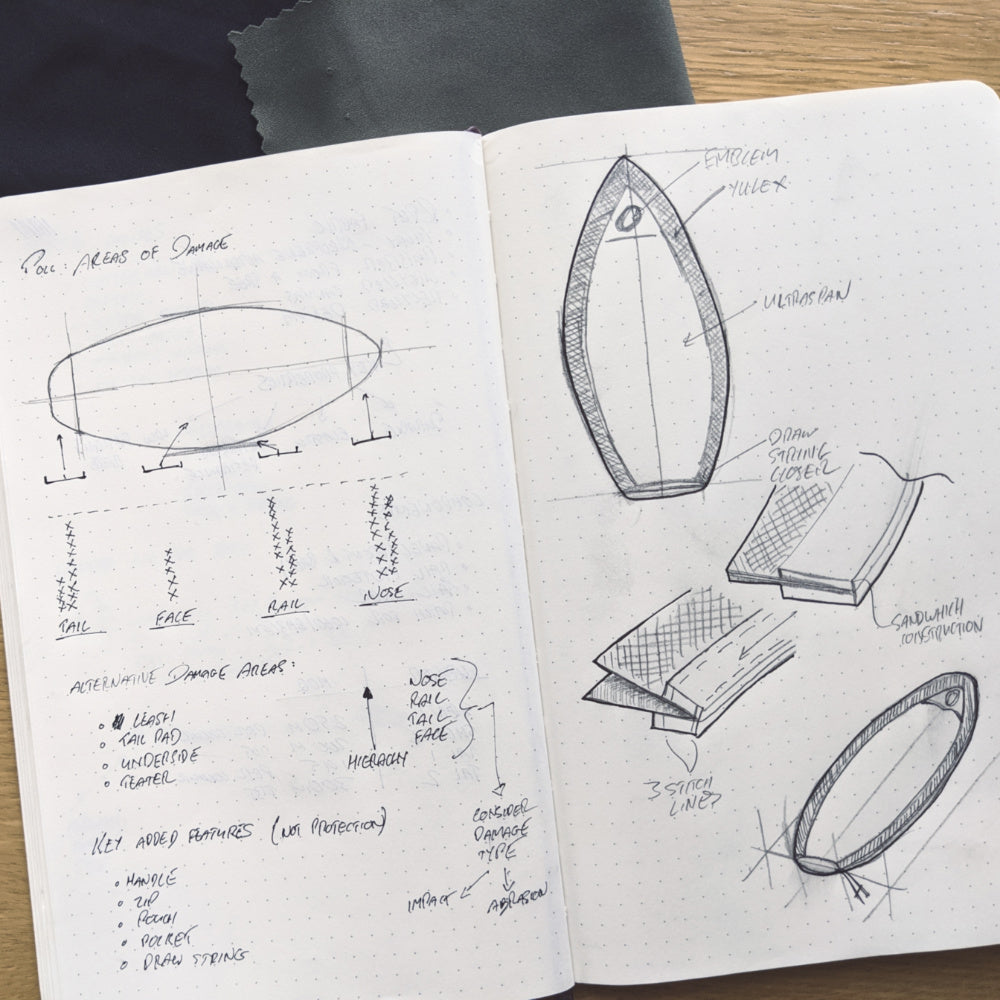 POLL: AREAS OF DAMAGE
TAIL
FACE
RAIL
NOSE
ALTERNATIVE DAMAGE AREAS:
LEASH
TAIL PAD
UNDERSIDE
TEATER
NOSE
RAIL
TAIL
FACE
HIERACHY
CONSIDER
DAMAGE
TYPE
IMPACT
ABRASION
KEY ADDED FEATURES (NOT PROTECTION)
HANDLE
ZIP
POUCH
POCKET
DRAW STRING
EMBLEM
YULEX
ULTRASPAN
DRAW
STRING
CLOSER
SANDWHICH
CONSTRUCTION
3 STITCH
LINES